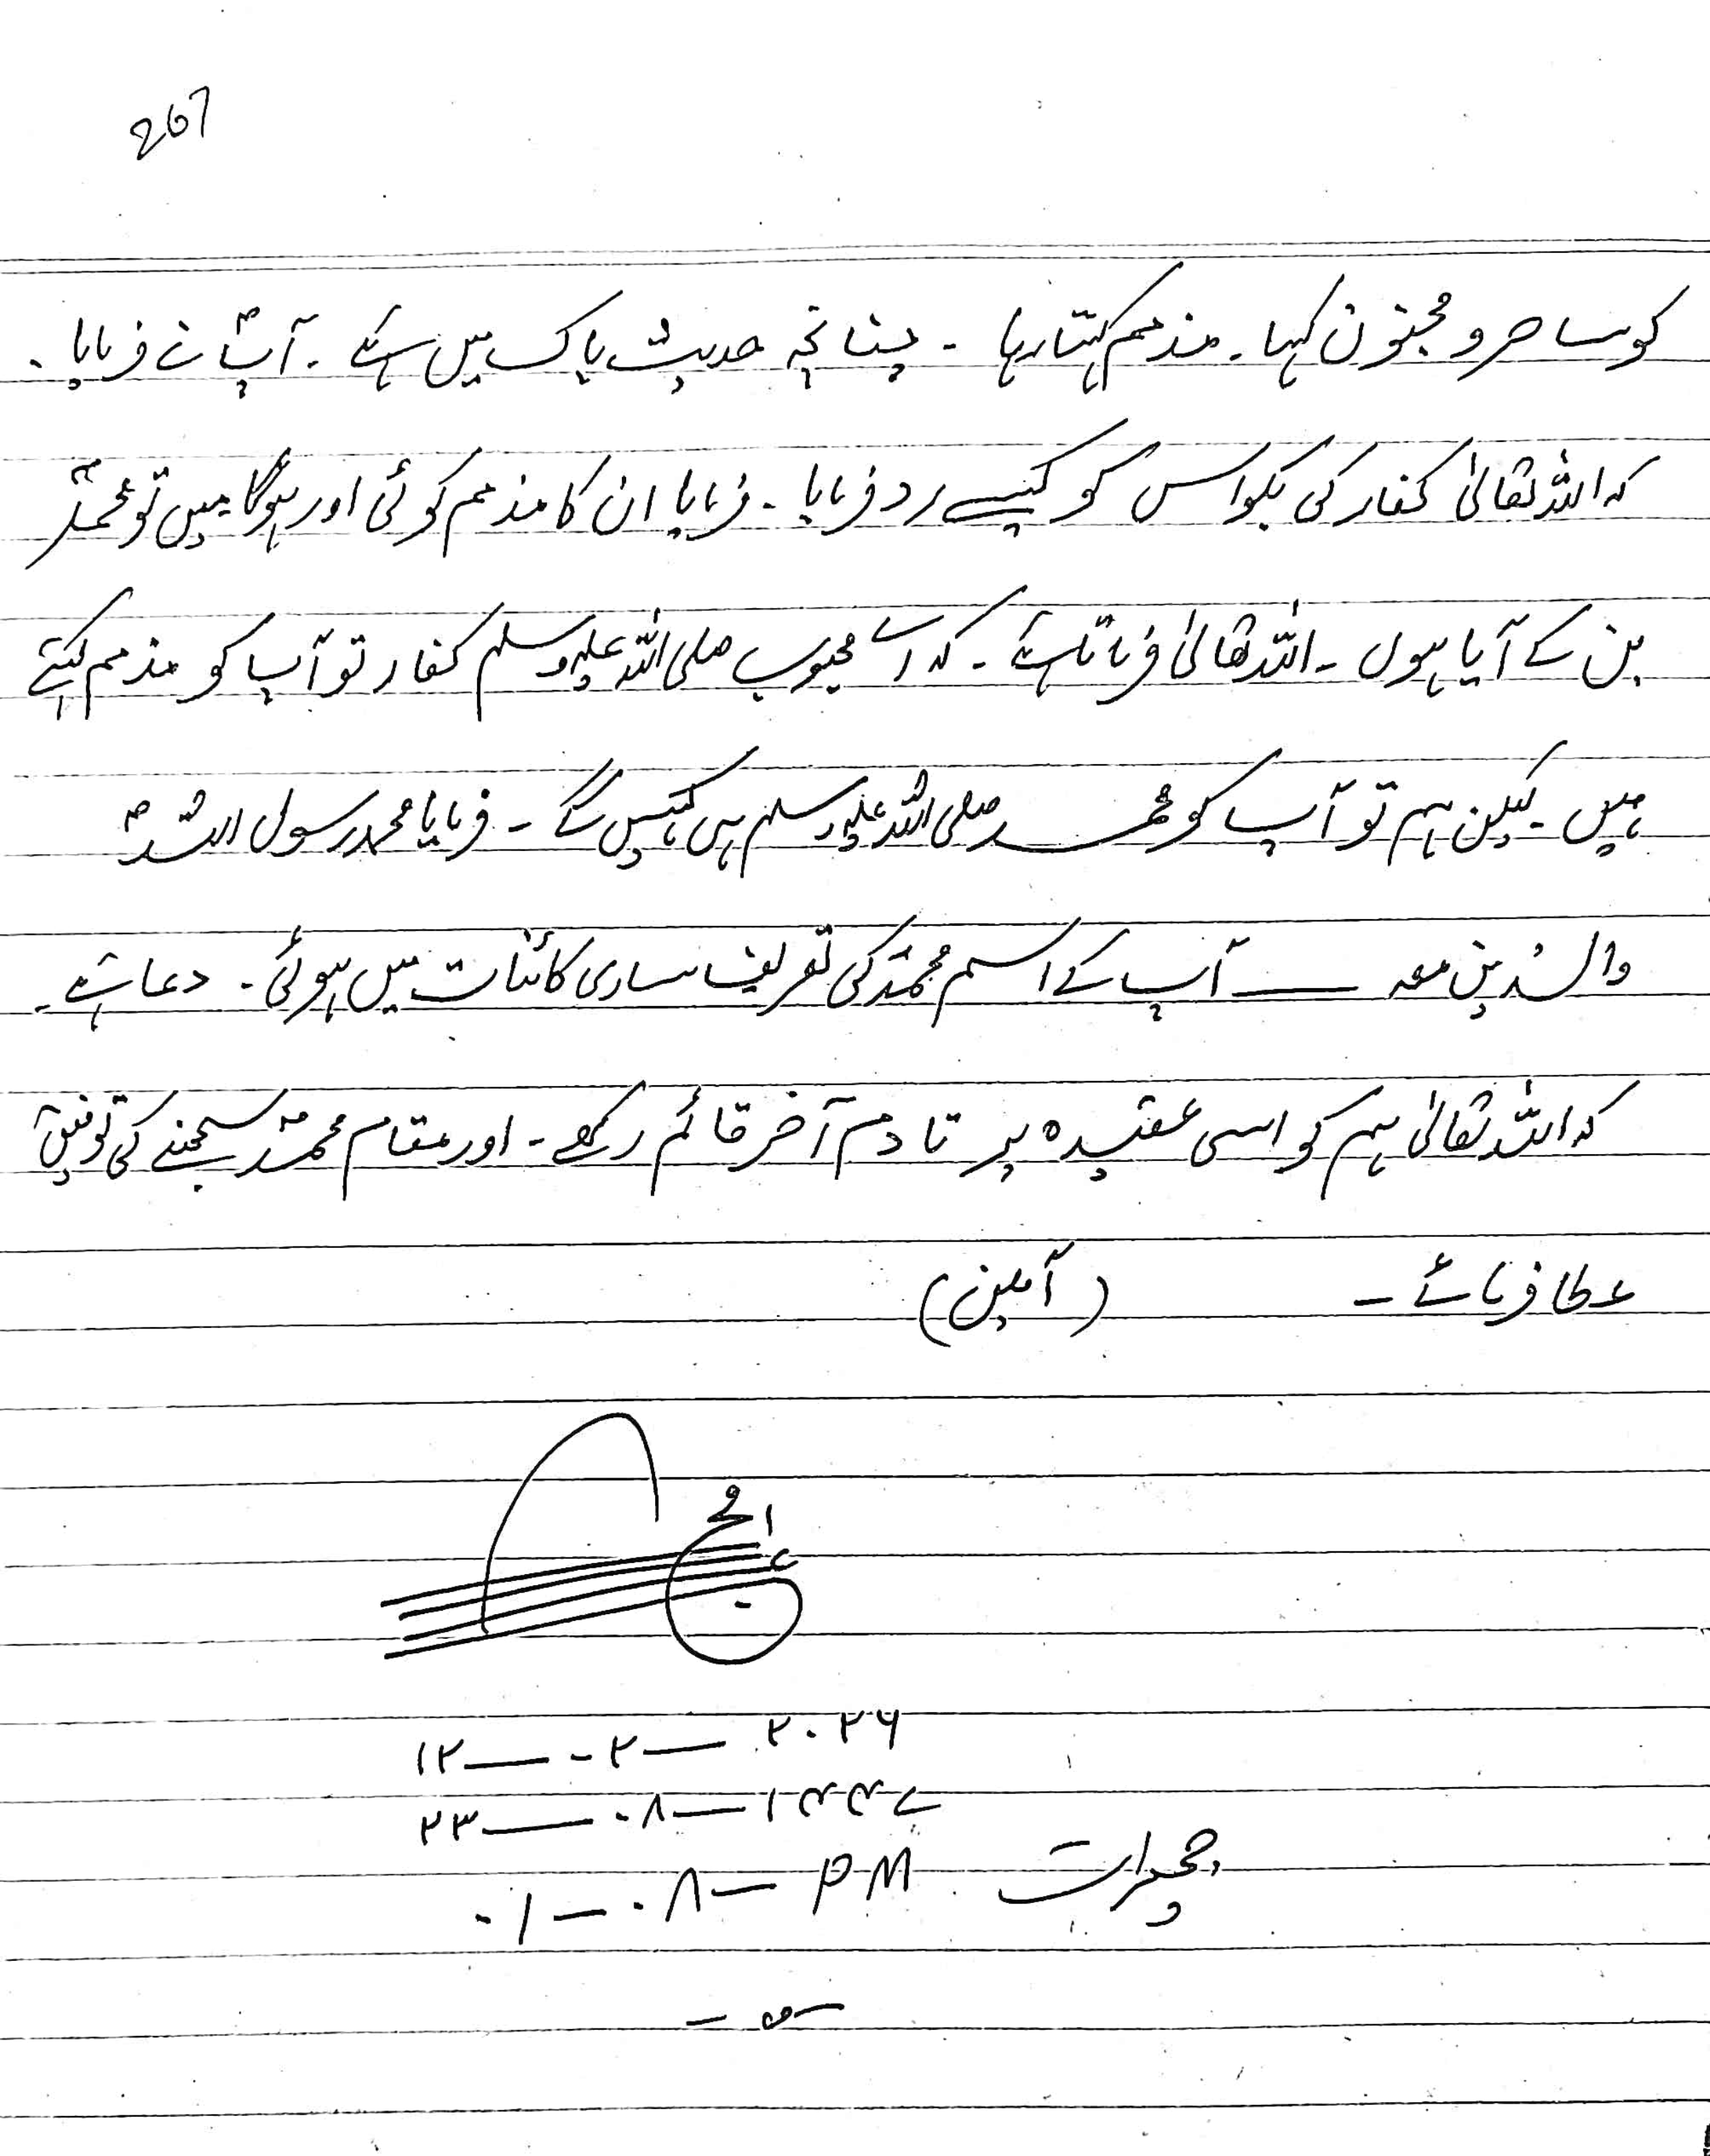 267
کو ساحر و مجنون کہا۔ مذمم کہتا رہا ۔ چنانچہ حدیث پاک میں ہے ۔ آپؐ نے فرمایا ۔
کہ اللہ تعالیٰ کفار کی بکواس کو کیسے رد فرمایا ۔ فرمایا ان کا مذمم کوئی اور ہوگا میں تو محمدؐ
بن کے آیا ہوں ۔ اللہ تعالیٰ فرماتا ہے ۔ کہ اے محبوب صلی اللہ علیہ وسلم کفار تو آپ کو مذمم کہتے
ہیں لیکن ہم تو آپ کو محمد صلی اللہ علیہ وسلم ہی کہیں گے ۔ فرمایا محمد رسول اللہؐ
والذین معہ ــــ آپ کے اسم محمدؐ کی تعریف ساری کائنات میں ہوئی ۔ دعا ہے ۔
کہ اللہ تعالیٰ ہم کو اسی عقیدہ پر تا دم آخر قائم رکھے ۔ اور مقام محمدؐ سمجھنے کی توفیق
عطا فرمائے ۔ (آمین)
۱۲ — ۰۲ — ۲۰۲۶
۲۳ — ۰۸ — ۱۴۴۷
جمعرات ۰۱ — ۰۸ — PM